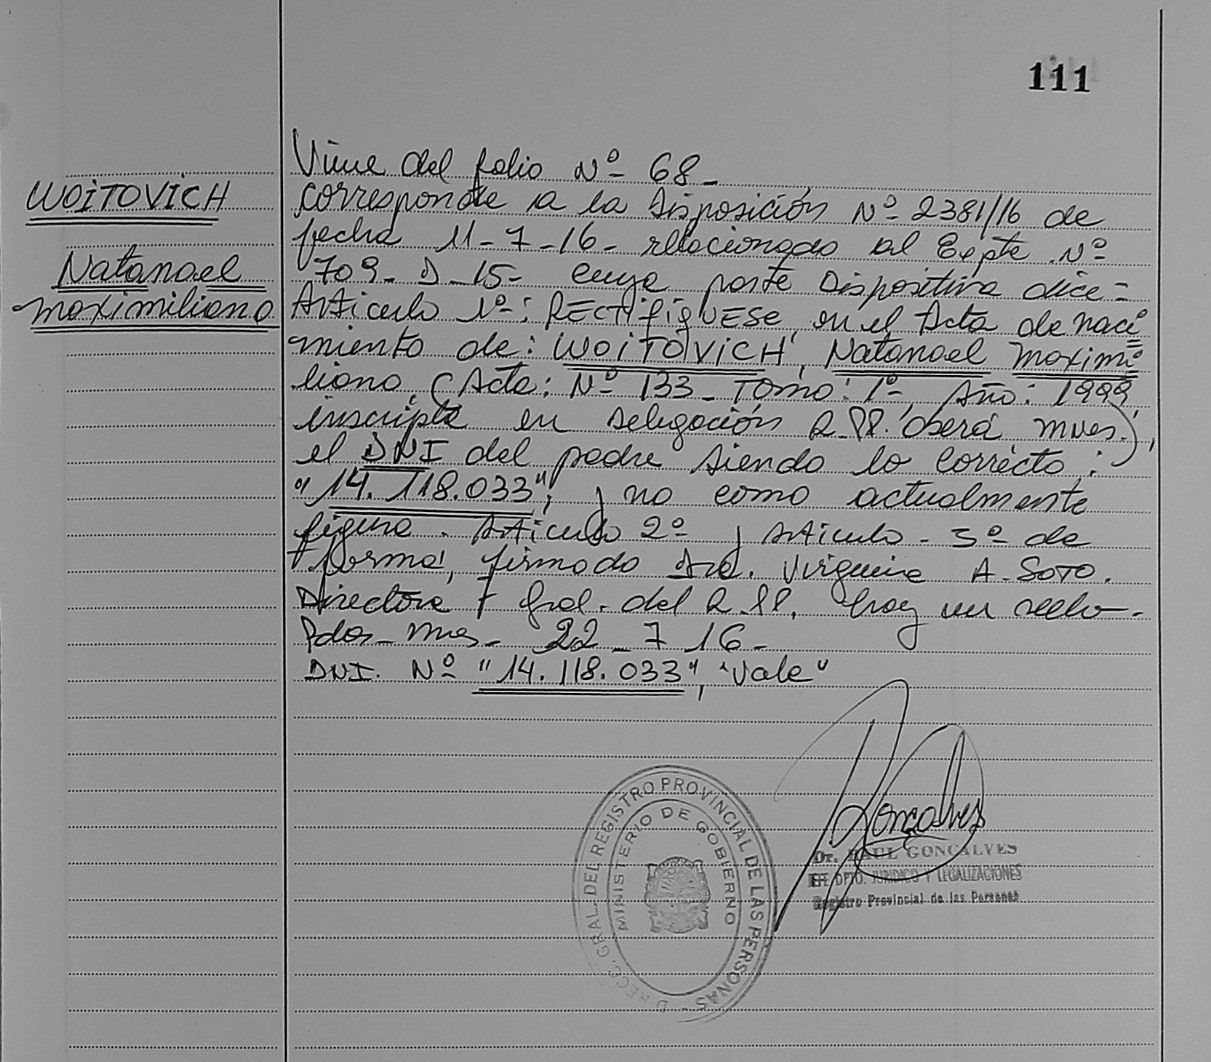 111
WOITOVICH
Natanael
Maximiliano
Viene del folio Nº 68_
corresponde a la Disposición Nº 2381/16 de
fecha 11-7-16- relacionado al Expte Nº
709- D-15- cuya parte Dispositiva dice=
Articulo 1º: RECTIFIQUESE, en el Acta de naci
miento de: WOITOVICH, Natanael Maximi
liano, (Acta: Nº 133_ Tomo: 1º, Año: 1999,
inscripta en Delegación R.PP. Oberá, mnes.),
el DNI del padre siendo lo correcto:
"14.118.033", y no como actualmente
figura. Articulo 2º y Articulo - 3º de
forma, firmado Dra. Virginia A. SOTO.
Directora Gral. del R.PP. hay un sello-.
Pdas- mnes- 22_7_16_
DNI. Nº "14.118.033", "Vale"
Goncalves
Dr. RAUL GONCALVES
JEFE DPTO. JURIDICO Y LEGALIZACIONES
Registro Provincial de las Personas
DIRECC. GRAL. DEL REGISTRO PROVINCIAL DE LAS PERSONAS
MINISTERIO DE GOBIERNO